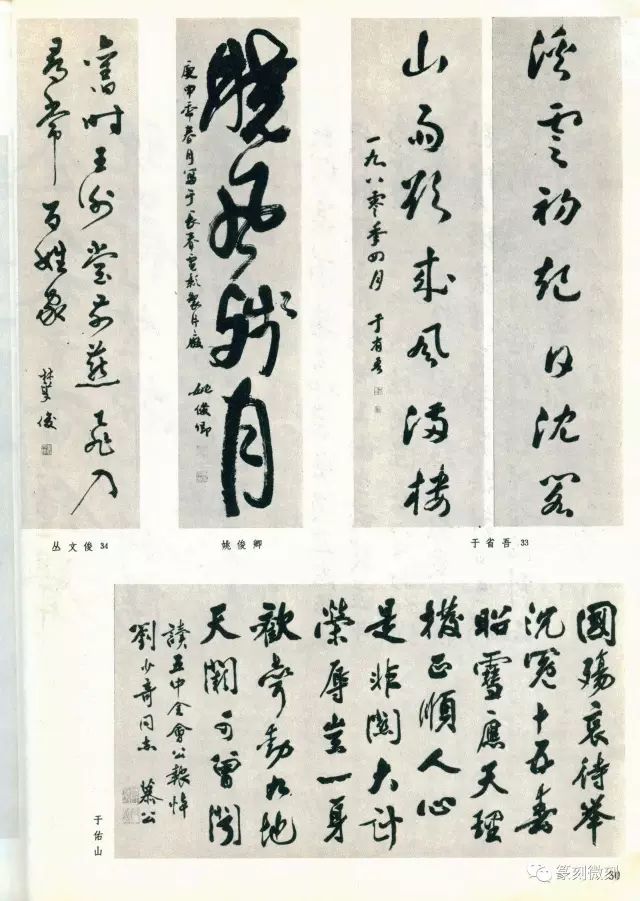 溪雲初起日沈閣
山雨欲來風滿樓
一九八零年四月 于省吾
于省吾 33
曉風殘月
庚申季春月寫于長春電影製片廠
姚俊卿
姚俊卿
舊時王謝堂前燕飛入
尋常百姓家
俊
丛文俊 34
國殤哀待舉
沉冤十五春
昭雪應天理
撥正順人心
是非關大計
榮辱豈一身
歡聲動九地
天闕可曾聞
讀五中全會公報悼
劉少奇同志 慕公
于佑山
30
篆刻微刻